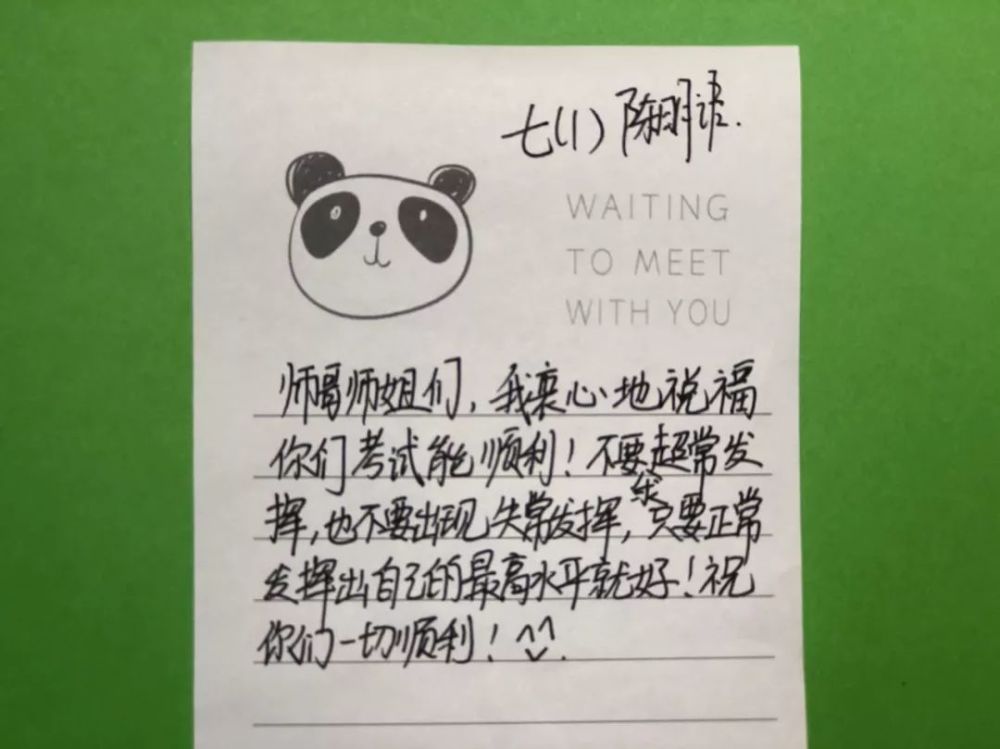 七(1) 陈明语.
WAITING
TO MEET
WITH YOU
师哥师姐们，我衷心地祝福
你们考试能顺利！不要求超常发
挥，也不要出现失常发挥，只要正常
发挥出自己的最高水平就好！祝
你们一切顺利！^_^.